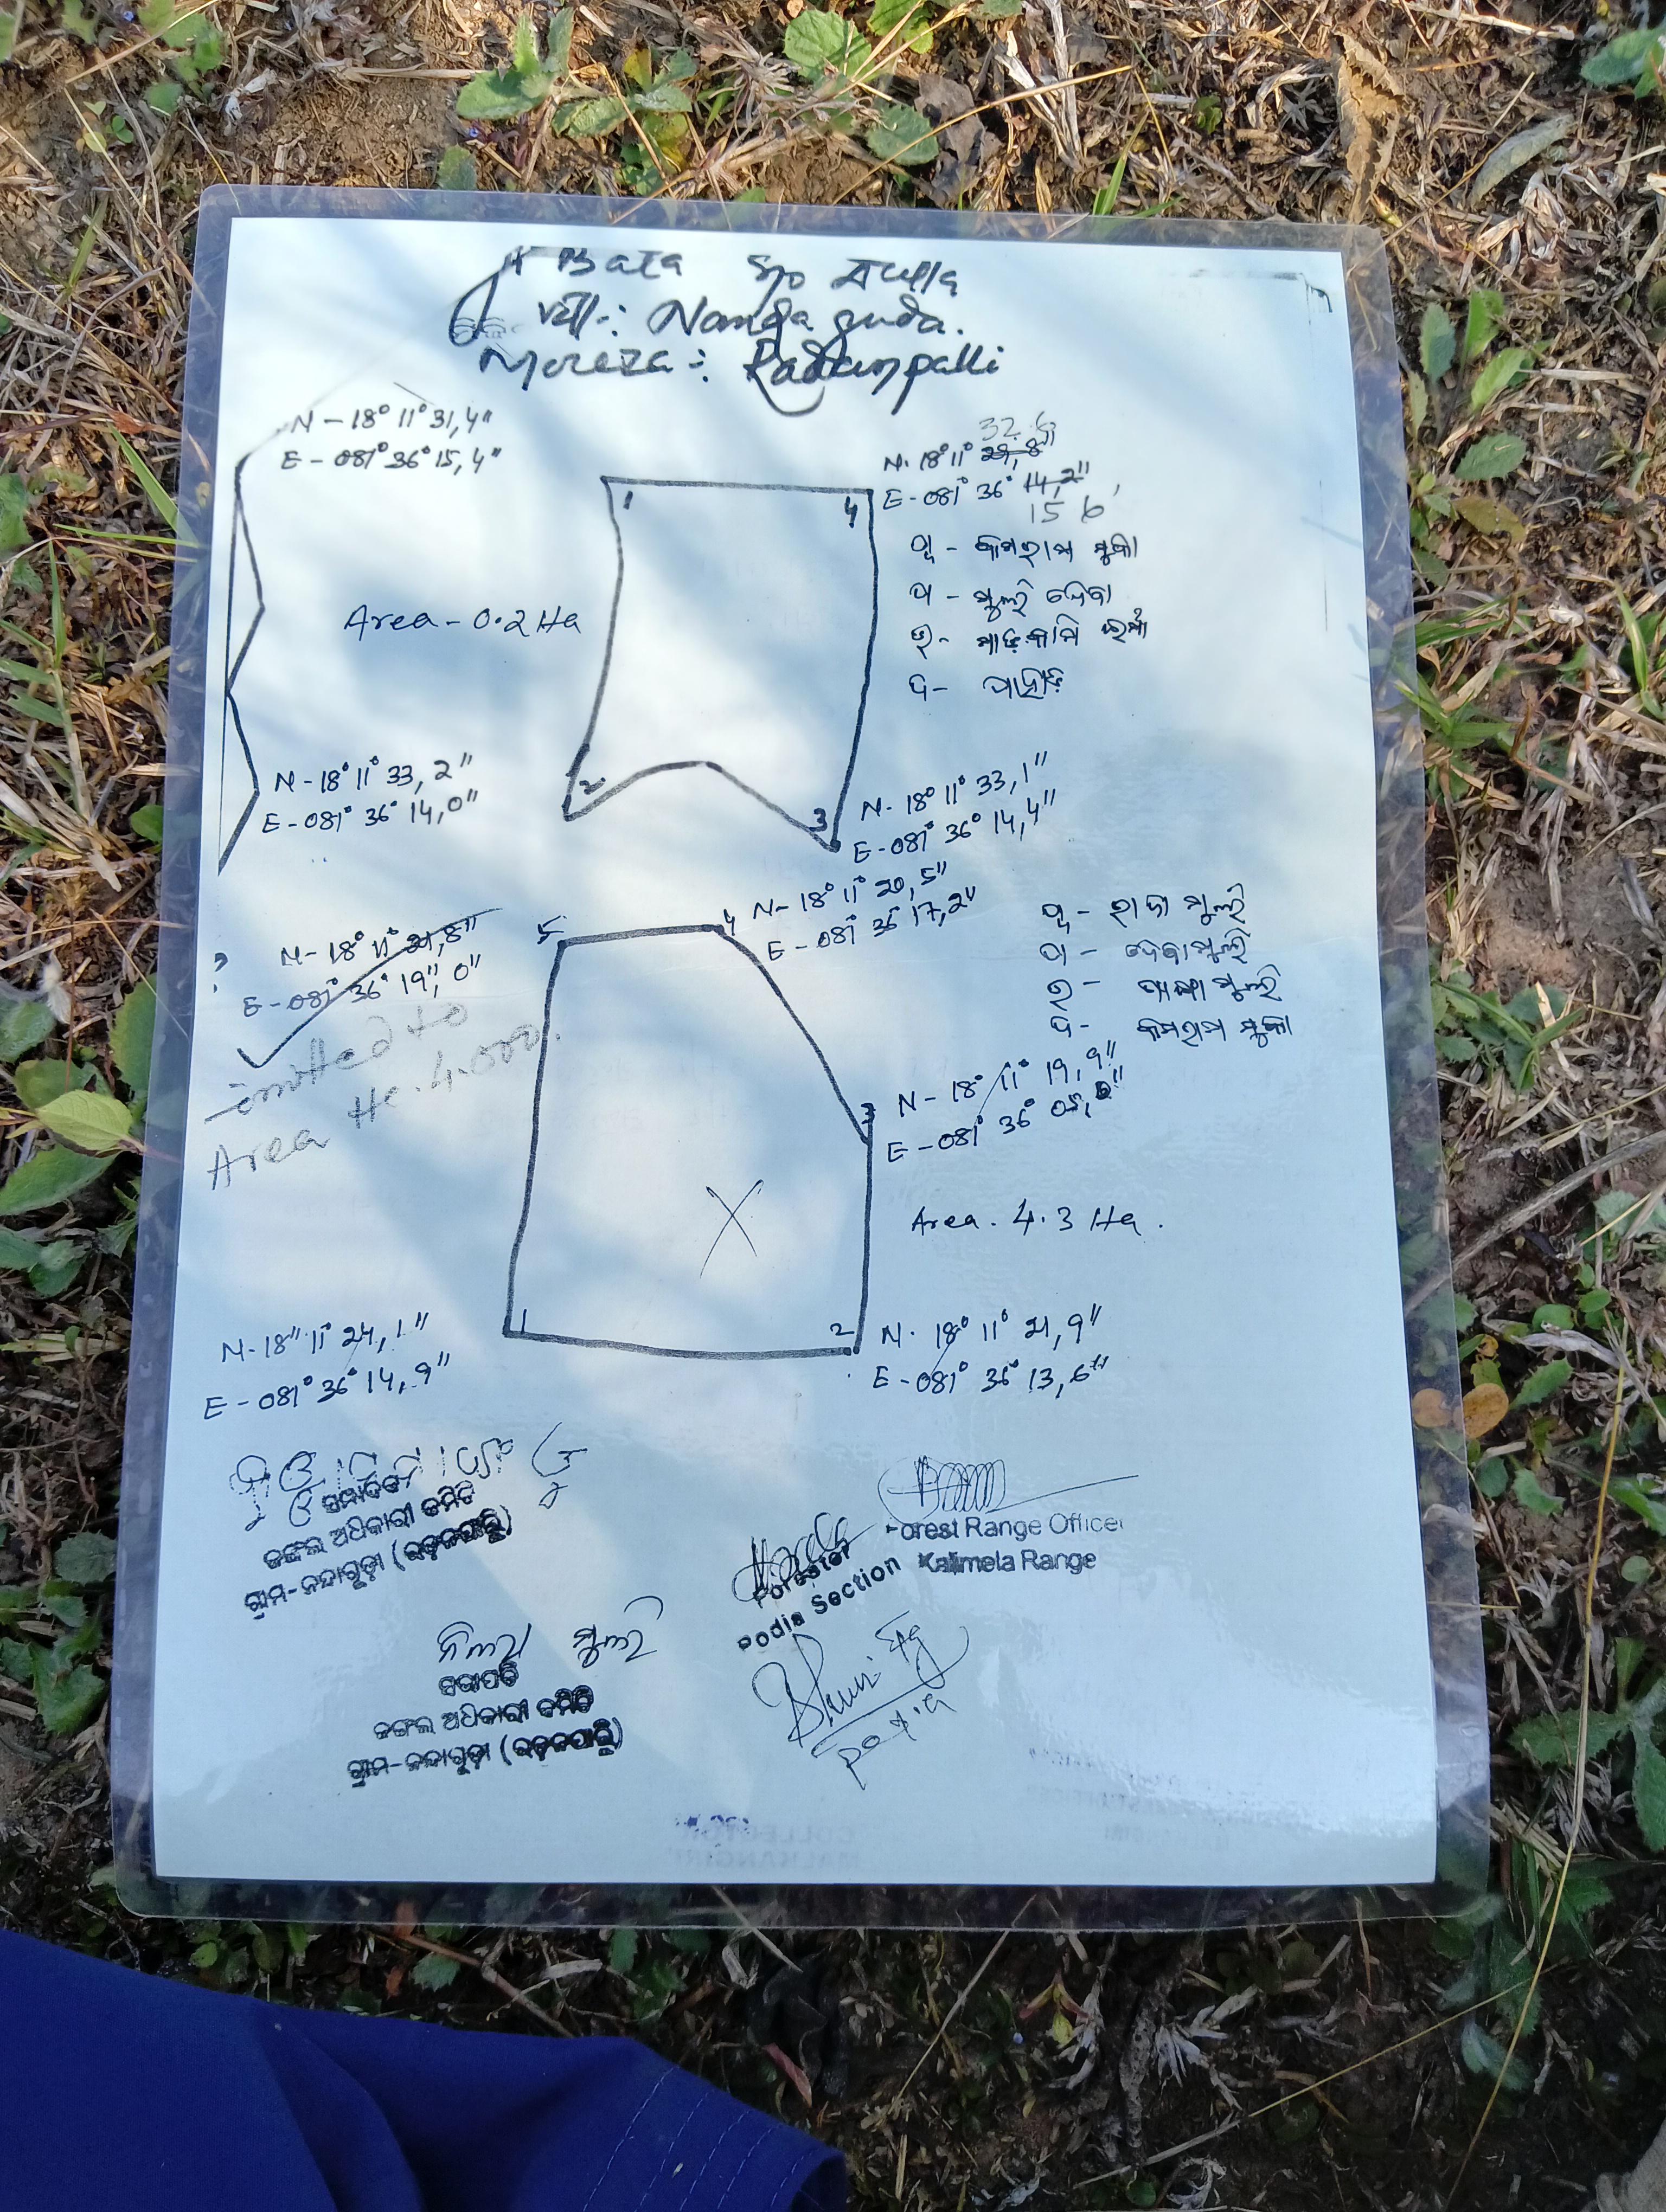 Bata S/o Aulla
Vill-: Nandaguda.
Moreza-: Radumpalli
N - 18° 11° 31,4"
E - 081° 36° 15,4"
32.6
N- 18° 11° 29,8"
E - 081° 36° 14,2"
15 6'
1
4
Area - 0.2 Ha
ପୂ - କମରାମ ମୁକା
ପ - ମୁଲି ଦେବା
ଉ - ମାଡ଼କାମି
ଦ - ପାହାଡ଼
2
3
N - 18° 11° 33, 2"
E - 081° 36° 14, 0"
N - 18° 11° 33, 1"
E - 081° 36° 14, 4"
5
4
N - 18° 11° 20, 5"
E - 081° 36° 17, 2"
?
N - 18° 11° 21,8"
E - 081° 36° 19", 0"
ପୂ - ରାଜା ମୁଲି
ପ - ଦେବା ମୁଲି
ଉ - ମୁଲି
ଦ - କମରାମ ମୁକା
to
Area He. 4.000.
3
N - 18° 11° 19, 9"
E - 081° 36° 05,
X
Area - 4.3 Ha.
1
2
N - 18" 11° 24, 1"
E - 081° 36° 14, 9"
N - 18° 11° 21, 9"
E - 081° 36° 13, 6"
ସମ୍ପାଦକ
ଜଙ୍ଗଲ ଅଧିକାରୀ କମିଟି
ଗ୍ରାମ-ନନ୍ଦାଗୁଡ଼ା
Forest Range Officer
Kalimela Range
Forester
Podia Section
ମୁଲି
ସଭାପତି
ଜଙ୍ଗଲ ଅଧିକାରୀ କମିଟି
ଗ୍ରାମ-ନନ୍ଦାଗୁଡ଼ା
podia
COLLECTOR
MALKANGIRI